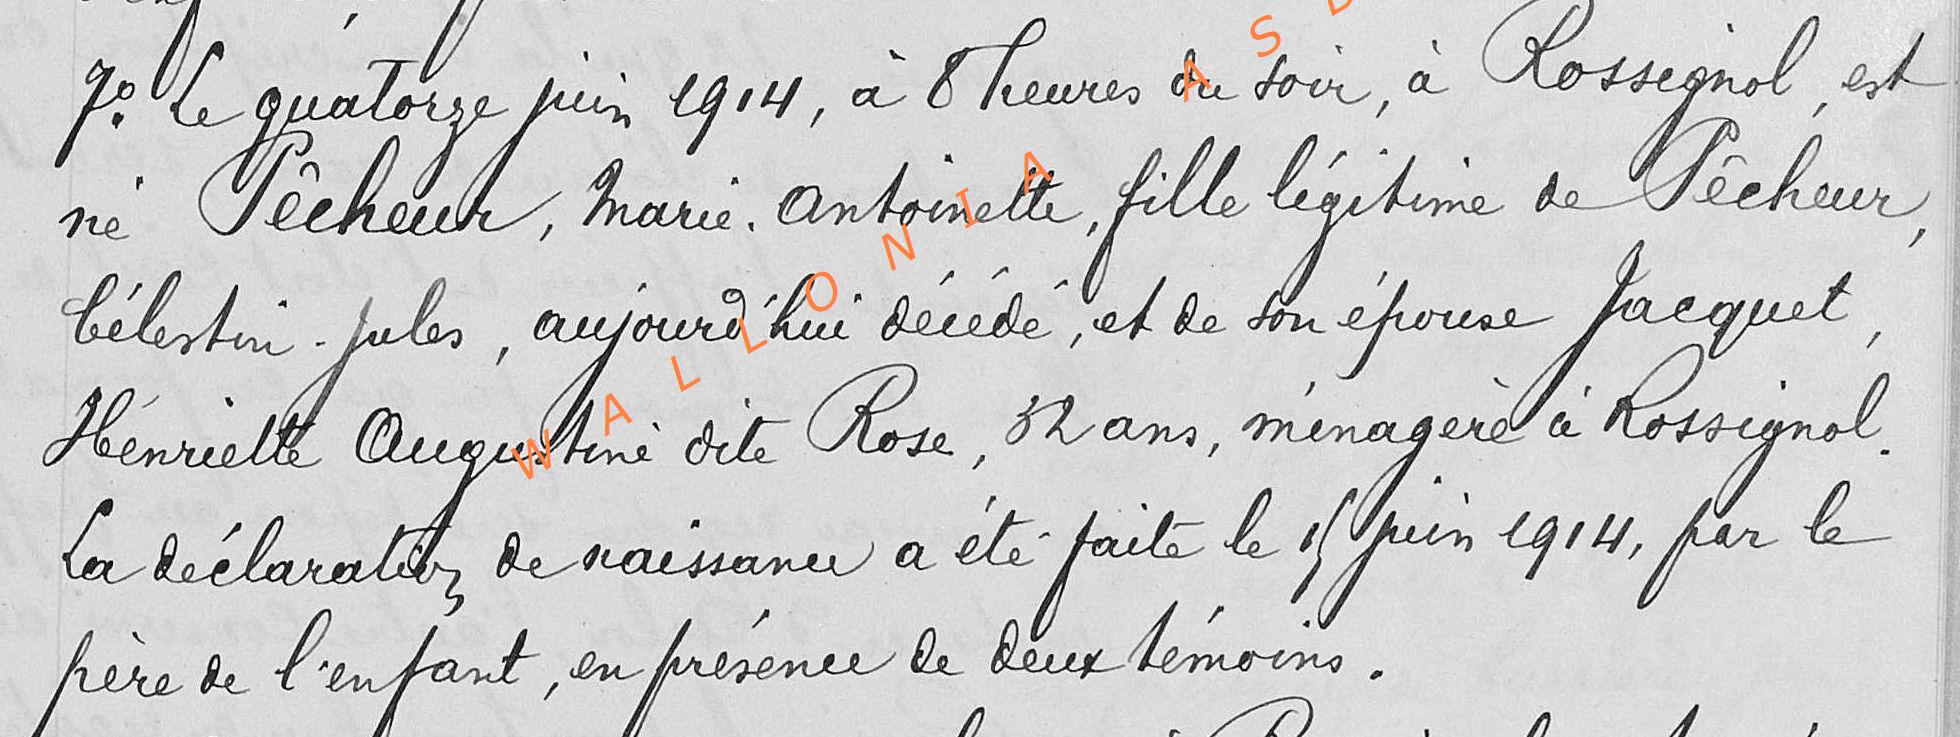 7° Le quatorze juin 1914, à 8 heures du soir, à Rossignol, est
né Pêcheur, Marie-Antoinette, fille légitime de Pêcheur,
Célestin-Jules, aujourd'hui décédé, et de son épouse Jacquet,
Henriette Augustine dite Rose, 32 ans, ménagère à Rossignol.
La déclaration de naissance a été faite le 15 juin 1914, par le
père de l'enfant, en présence de deux témoins.
WALLONIA AS